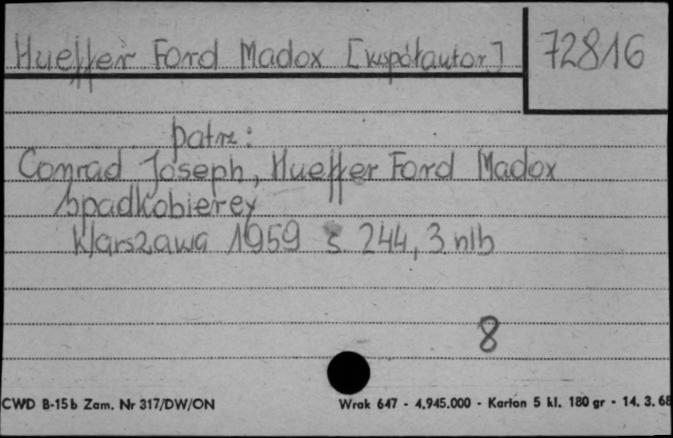 Hueffer Ford Madox [współautor] 72816
patrz:
Conrad Joseph, Hueffer Ford Madox
Spadkobiercy
Warszawa 1959 s 244, 3 nlb
8
CWD B-15b Zam. Nr 317/DW/ON Wrak 647 - 4.945.000 - Karton 5 kl. 180 gr - 14. 3. 68